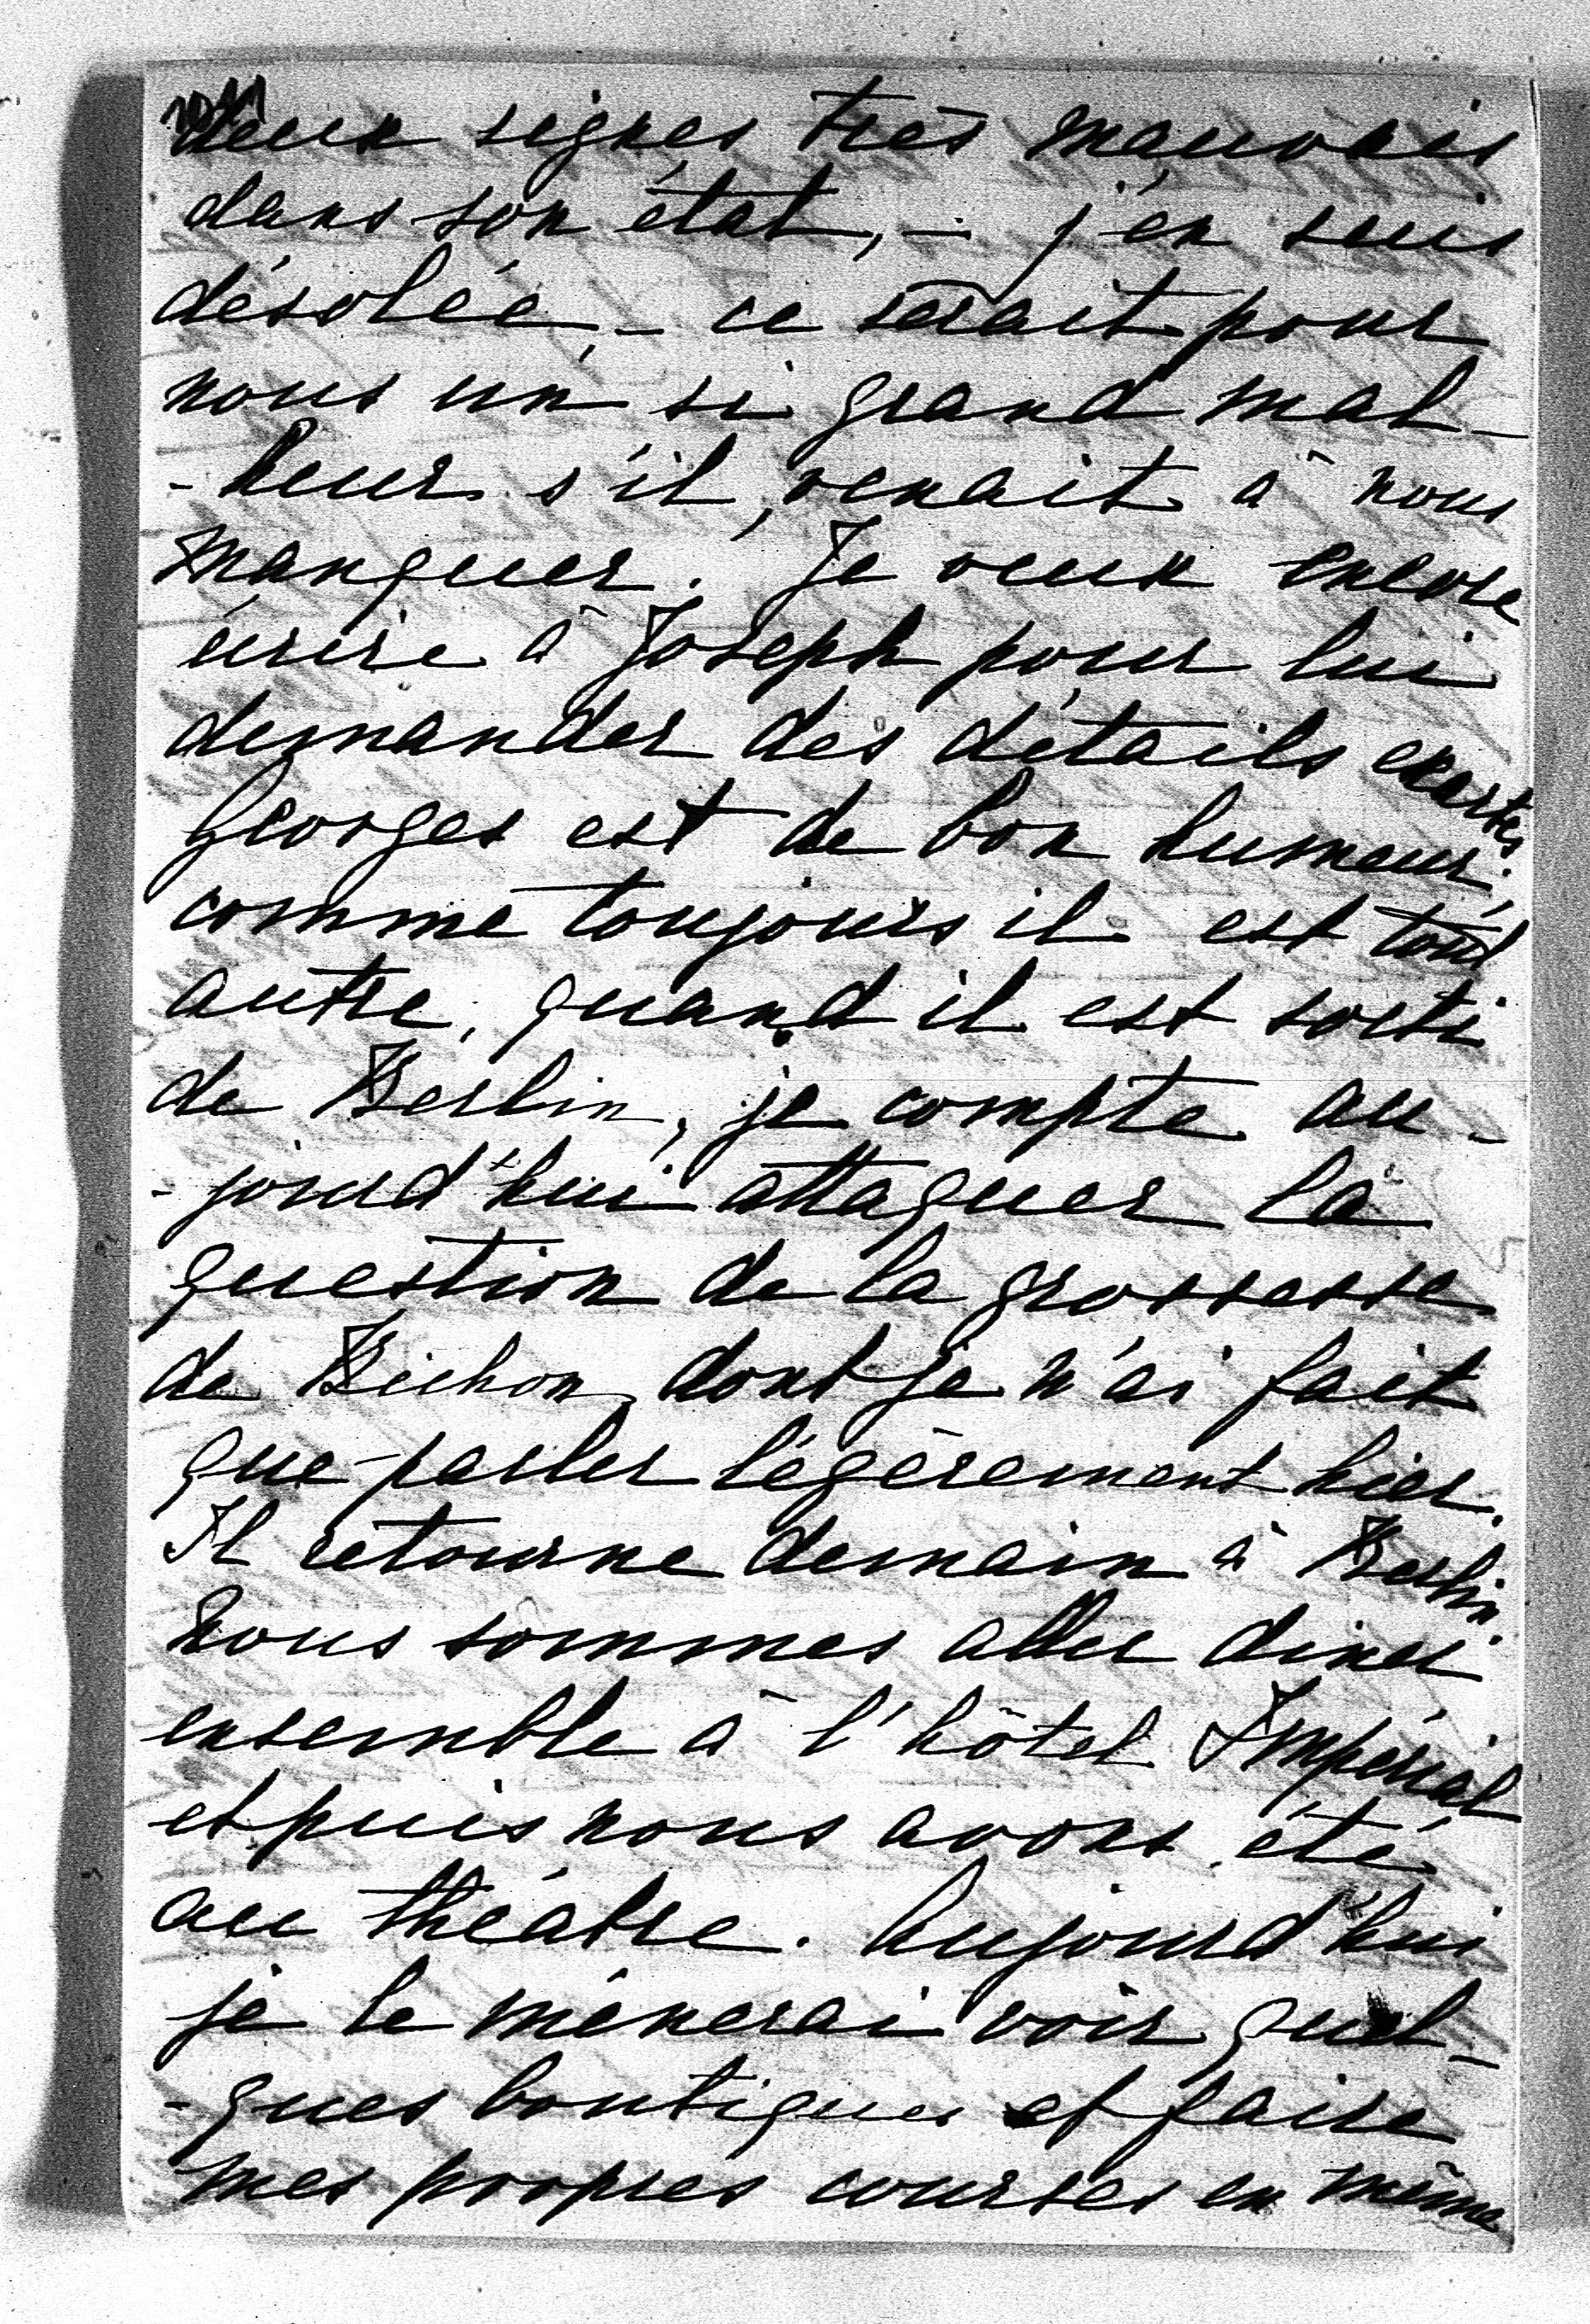 deux signes très mauvais
dans son état, - j'en suis
désolée, - ce serait pour
nous un si grand mal-
-heur s'il venait à nous
manquer. Je veux encore
écrire à Joseph pour lui
demander des détails exactes
Georges est de bon humeur,
comme toujours il est tout
autre, quand il est sorti
de Berlin, je compte au-
-jourd'hui attaquer la
question de la grossesse
de Bichon, dont je n'ai fait
que parler légèrement hier.
Il retourne demain à Berlin
Nous sommes aller diner
ensemble à l'hôtel Impérial
et puis nous avons été
au théâtre. Aujourd'hui
je le mènerai voir quel-
-ques boutiques et faire
mes propres courses en même